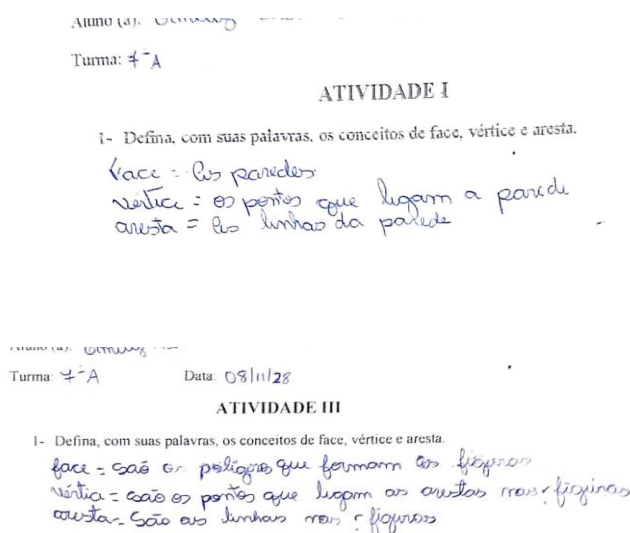 Aluno (a):
Turma: 7ª A
ATIVIDADE I
1- Defina, com suas palavras, os conceitos de face, vértice e aresta.
Face = As paredes
vértice = os pontos que ligam a parede
aresta = As linhas da parede
Aluno (a):
Turma: 7ª A Data: 08/11/28
ATIVIDADE III
1- Defina, com suas palavras, os conceitos de face, vértice e aresta.
face = são os que formam as figuras
vértice = são os pontos que ligam as arestas nas figuras
aresta = são as linhas nas figuras